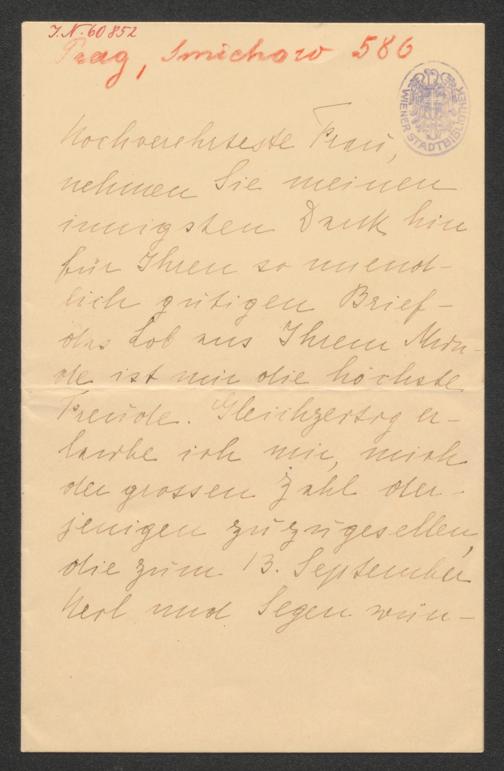 I.N. 60852
Prag, Smichow 586
WIENER STADTBIBLIOTHEK
Hochverehrteste Frau,
nehmen Sie meinen
innigsten Dank hin
für Ihren so unend-
lich gütigen Brief-
das Lob aus Ihrem Mun-
de ist mir die höchste
Freude. Gleichzeitig er-
laube ich mir, mich
der grossen Zahl der-
jenigen zuzugesellen,
die zum 13. September
Heil und Segen wün-